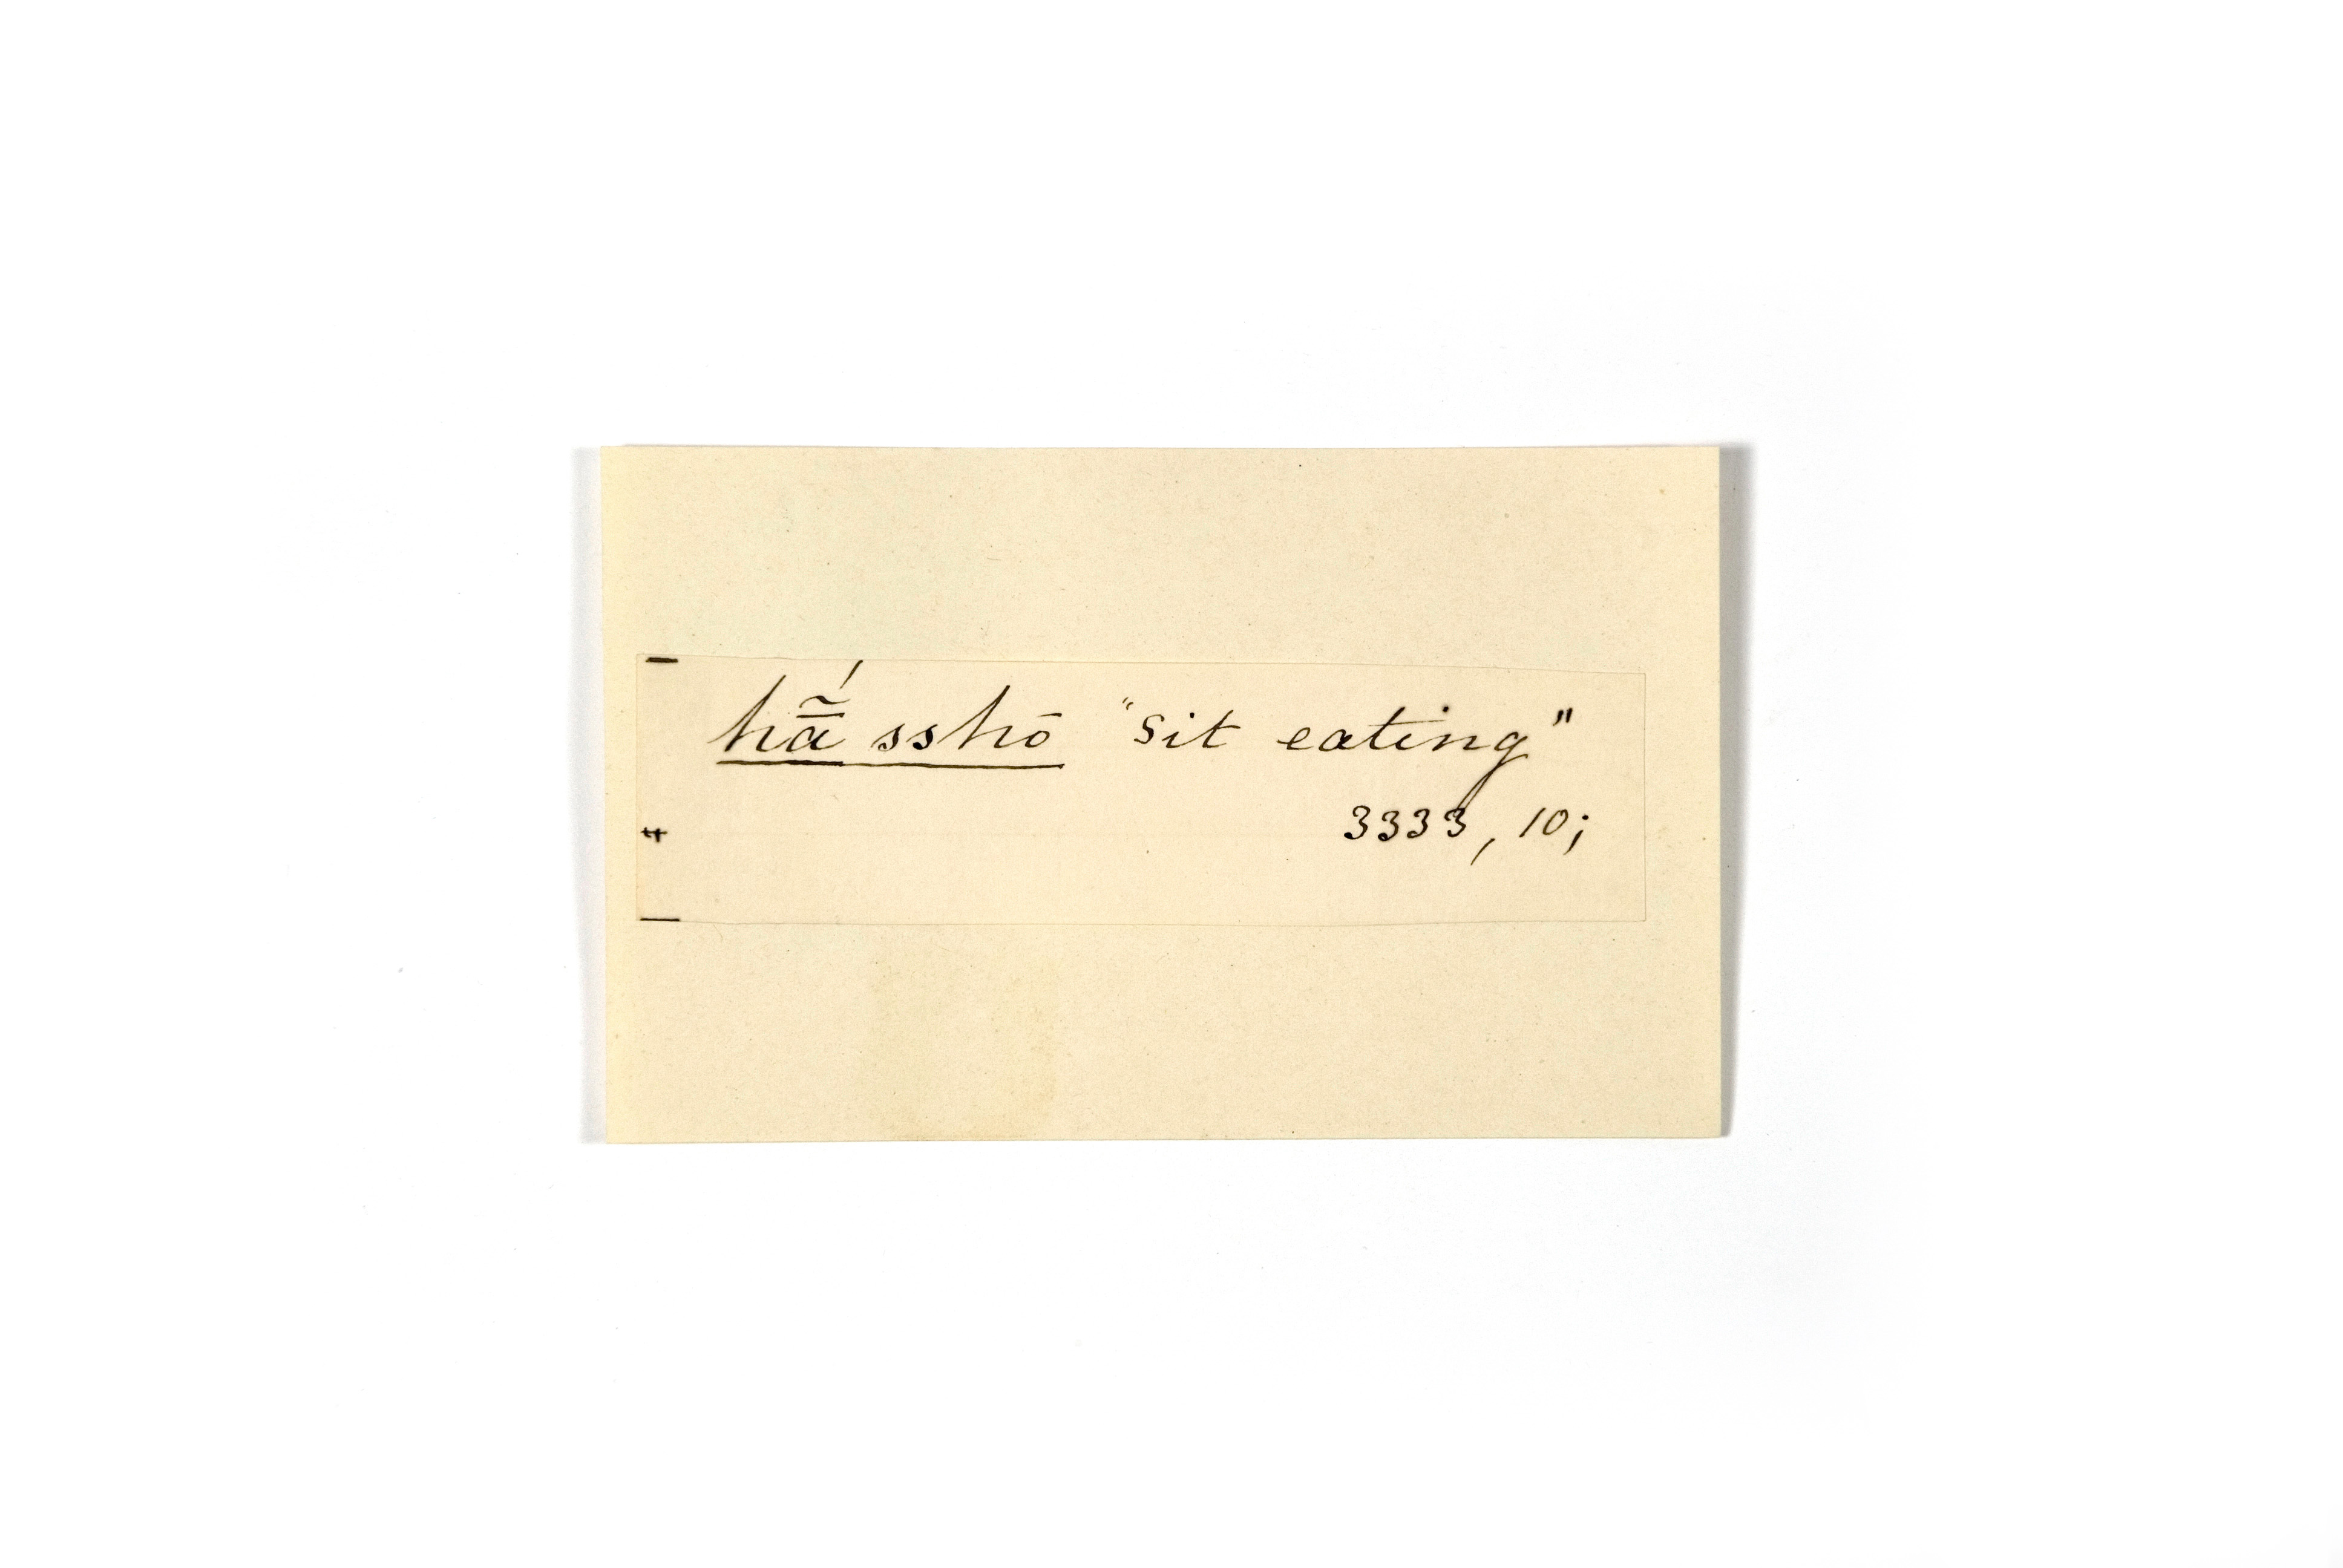 hā̃́ sshō "sit eating"
3333, 10;